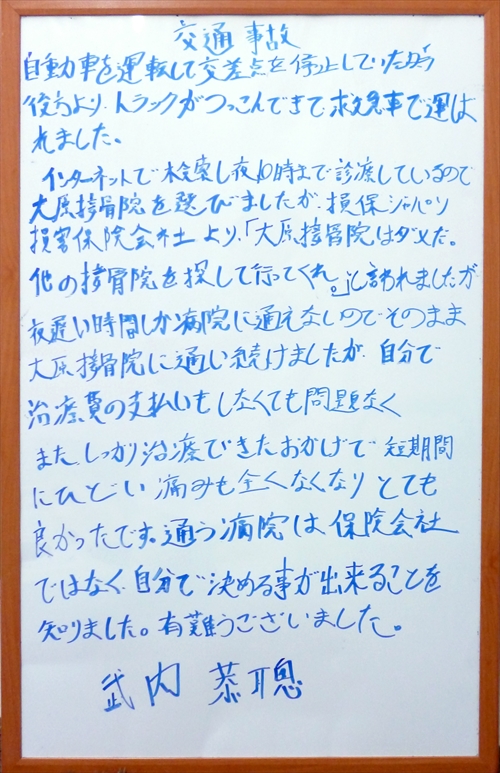 交通事故
自動車を運転して交差点を停止していた所
後方より、トラックがつっこんできて救急車で運ば
れました。
インターネットで検索し夜10時まで診療しているので
大原接骨院を選びましたが、損保ジャパン
損害保険会社より、「大原接骨院はダメだ。
他の接骨院を探して行ってくれ。」と言われましたが
夜遅い時間しか病院に通えないのでそのまま
大原接骨院に通い続けましたが、自分で
治療費の支払いもしなくても問題なく
また、しっかり治療できたおかげで短期間
にひどい痛みも全くなくなりとても
良かったです。通う病院は、保険会社
ではなく、自分で決める事が出来ることを
知りました。有難うございました。
武内 恭聰